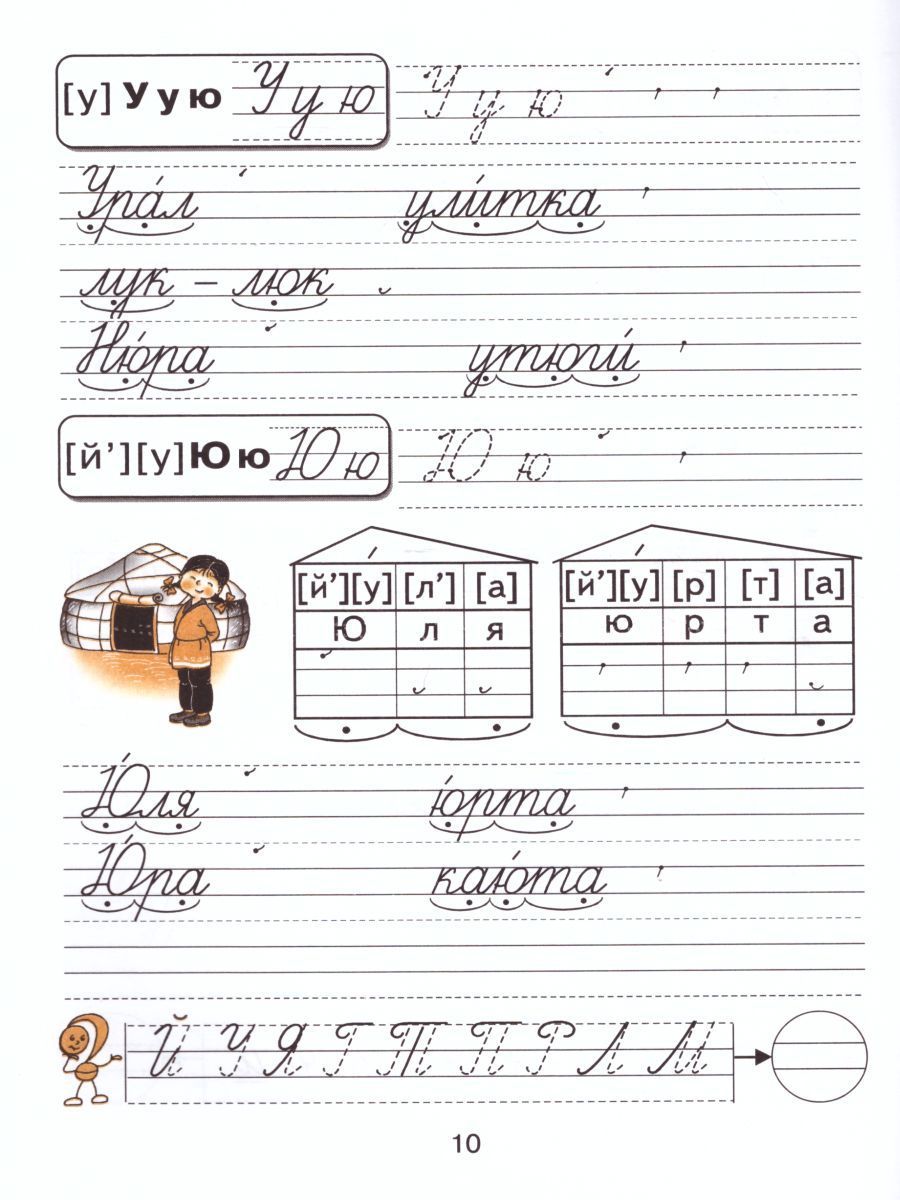 [у] У у ю У у ю У у ю
Ура́л ули́тка
лук – люк
Ню́ра утюги́
[й’][у] Ю ю Ю ю Ю ю
[й’][у] [л’] [а] [й’][у] [р] [т] [а]
Ю л я ю р т а
Ю́ля ю́рта
Ю́ра каю́та
Й У Я Г Т П Р Л М
10